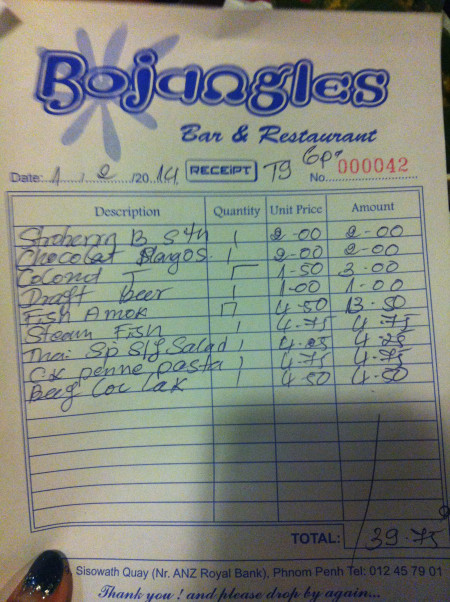 Bojangles
Bar & Restaurant
Date: 1 / 2 /20 14 RECEIPT T9 6p No. 000042
Description Quantity Unit Price Amount
B S 1 2-00 2-00
Chocolat 1 2-00 2-00
T 1-50 3-00
Draft Beer 1 1-00 1-00
Fish Amok 4-50 13-50
Steam Fish 1 4-75 4-75
Thai Sp Salad 1 4-25 4-25
penne pasta 1 4-75 4-75
Beef Loc Lak 1 4-50 4-50
TOTAL: 39-75
Sisowath Quay (Nr. ANZ Royal Bank), Phnom Penh Tel: 012 45 79 01
Thank you ! and please drop by again...